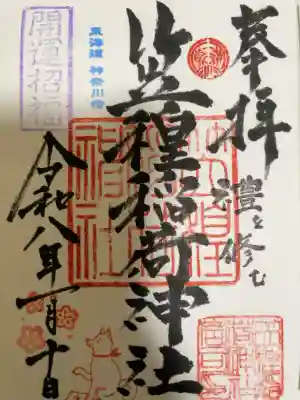 奉拝
禮を修む
笠䅣稲荷神社
東海道 神奈川宿
開運招福
令和八年一月十日
神社